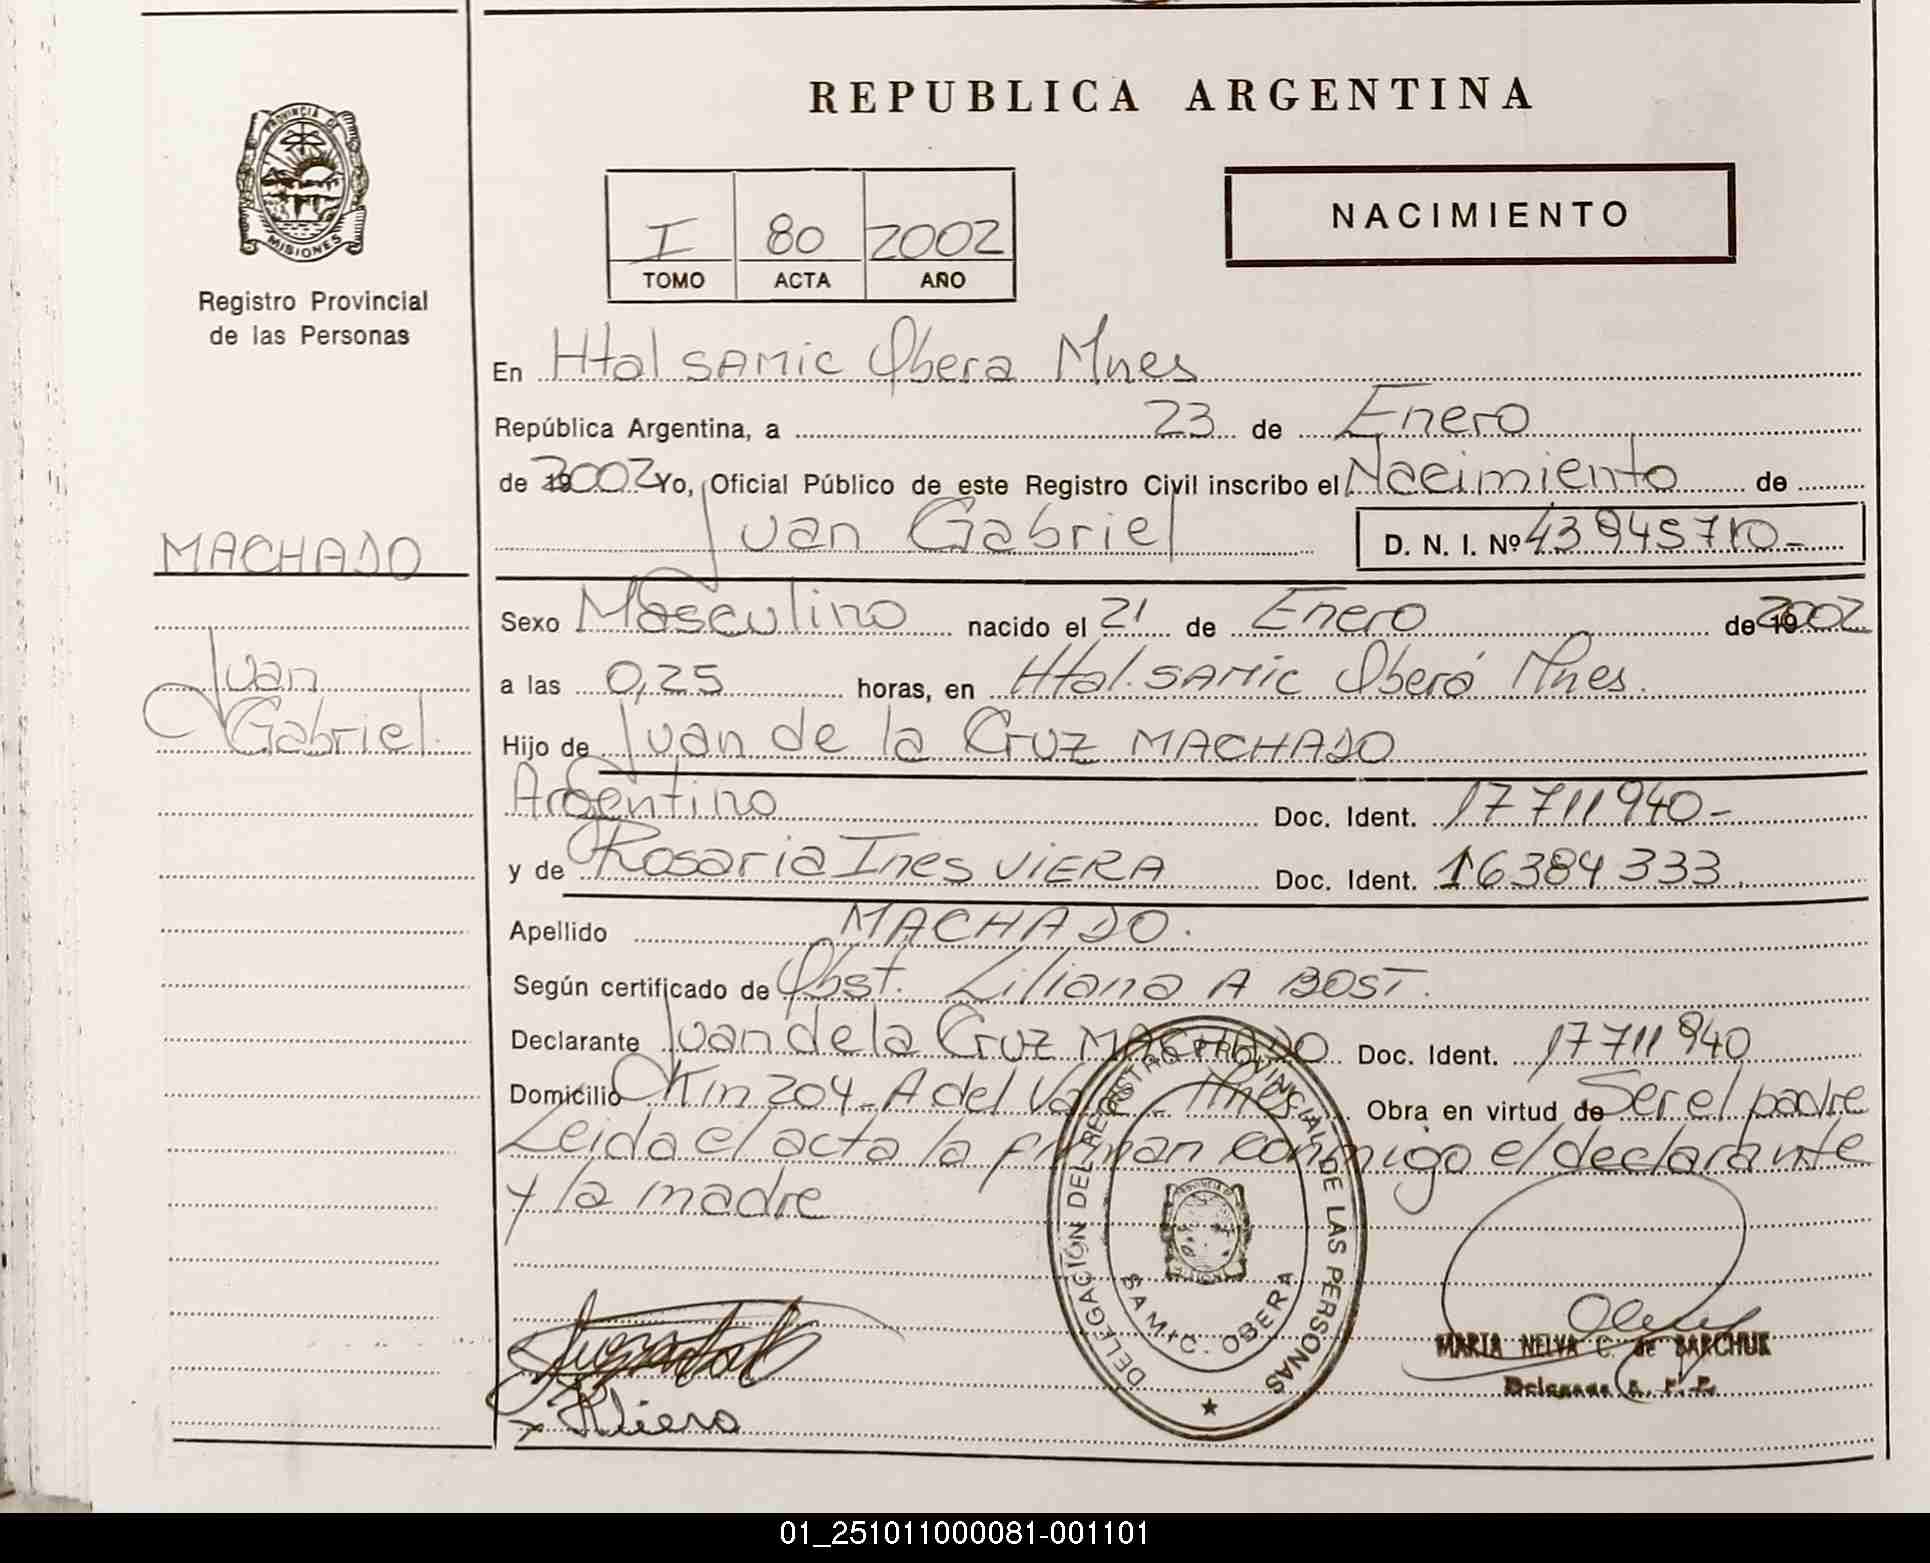 REPUBLICA ARGENTINA
PROVINCIA DE
MISIONES
Registro Provincial
de las Personas
I 80 2002
TOMO ACTA AÑO
NACIMIENTO
En Htal SAMIC Obera Mnes
República Argentina, a 23 de Enero
de 2002 Yo, Oficial Público de este Registro Civil inscribo el Nacimiento de
Juan Gabriel D. N. I. Nº 43945710-
MACHADO
Juan
Gabriel.
Sexo Masculino nacido el 21 de Enero de 2002
a las 0,25 horas, en Htal. SAMIC Oberá Mnes.
Hijo de Juan de la Cruz MACHADO
Argentino Doc. Ident. 17711940-
y de Rosaria Ines VIERA Doc. Ident. 16384333
Apellido MACHADO.
Según certificado de Obst. Liliana A BOST.
Declarante Juan de la Cruz MACHADO Doc. Ident. 17711940
Domicilio Km 204 - A del Valle - Mnes Obra en virtud de Ser el padre
Leida el acta la firman conmigo el declarante
y la madre
DELEGACIÓN DEL REGISTRO PROVINCIAL DE LAS PERSONAS
SAMIC. OBERA
MARIA NELVA C. de BARCHUK
Delegada R. P. P.
x RViera
01_251011000081-001101